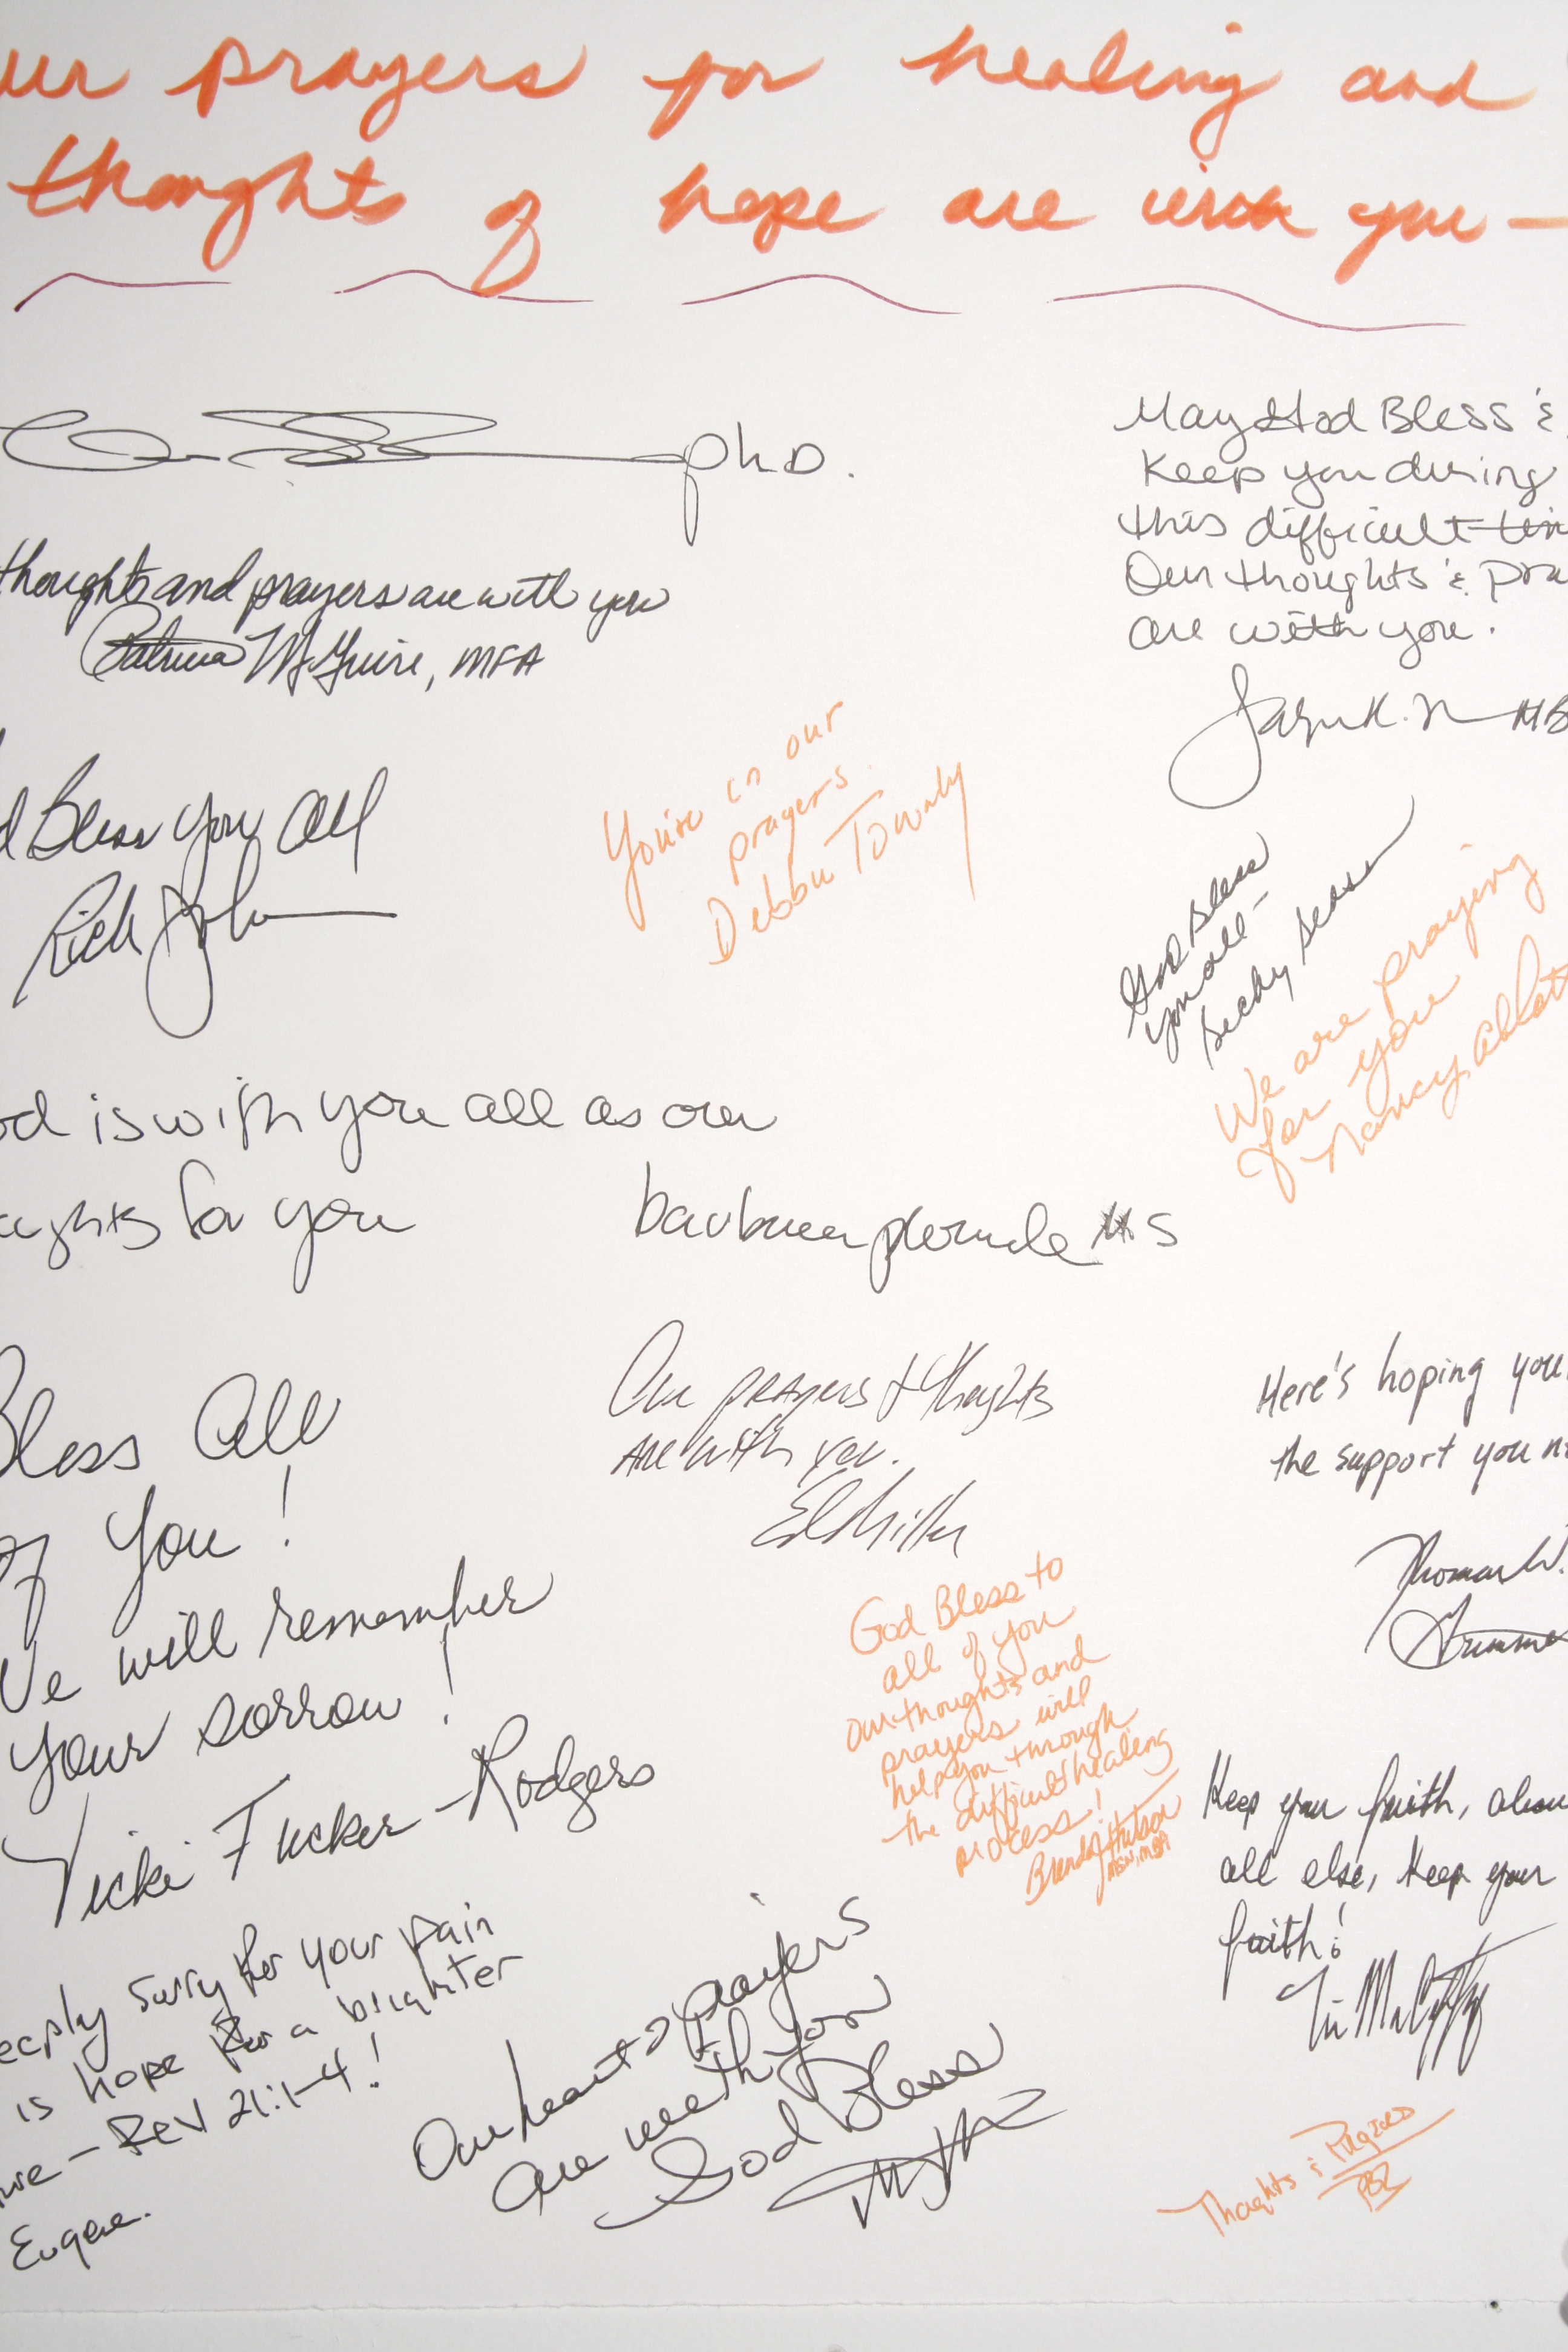 ur prayers for healing and
thoughts of hope are with you —
phD.
thoughts and prayers are with you
Patricia McGuire, MFA
May God Bless &
Keep you during
this difficult tim
Our thoughts & pra
are with you.
d Bless You All
Rick
You're in our
prayers.
Debbie Townly
God Bless
you all -
Becky
We are praying
for you
Nancy Abbott
od is with you all as our
ughts for you
MS
Bless All
of You!
We will remember
your sorrow!
Vicki Tucker-Rodgers
Our prayers & thoughts
are with you.
Ed Miller
Here's hoping you
the support you n
Thomas W.
God Bless to
all of you
our thoughts and
prayers will
help you through
the difficult healing
process!
Brenda Hutson
MSN, MBA
Keep your faith, above
all else, keep your
faith!
Tim
eeply sorry for your pain
is hope for a brighter
ure - Rev 21:1-4!
Eugene.
Our heart & prayers
are with you
God Bless
Thoughts & Prayers